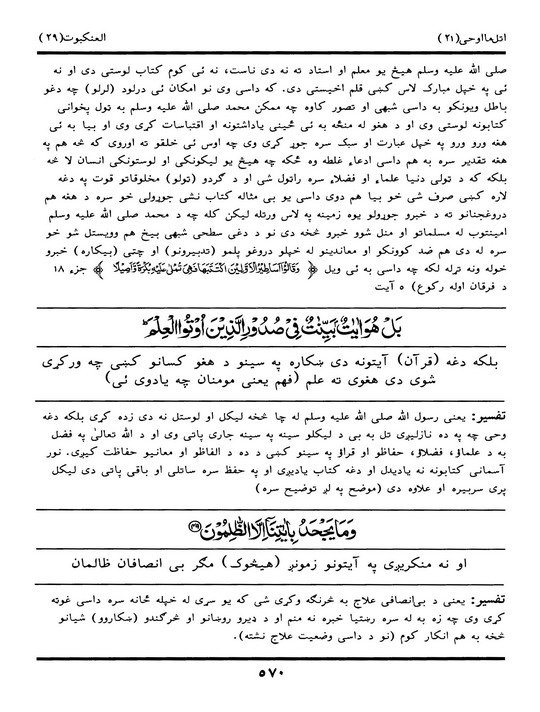 اتل ما اوحی (۲۱) العنکبوت (۲۹)
صلی الله علیه وسلم هیڅ یو معلم او استاد ته نه دی ناست، نه ئی کوم کتاب لوستی دی او نه
ئی په خپل مبارک لاس کښی قلم اخیستی دی. که داسی وی نو امکان ئی درلود (لرلو) چه دغو
باطل ویونکو به داسی شبهی او تصور کاوه چه ممکن محمد صلی الله علیه وسلم به تول پخوانی
کتابونه لوستی وی او د هغو له منځه به ئی ځینی یاداشتونه او اقتباسات کړی وی او بیا به ئی
هغه ورو ورو په خپل عبارت او سبک سره جوړ کړی وی چه اوس ئی خلقو ته اوروی که څه هم په
هغه تقدیر سره به هم داسی ادعاء غلطه وه ځکه چه هیڅ یو لیکونکی او لوستونکی انسان لا څه
بلکه که د تولی دنیا علماء او فضلاء سره راتول شی او د ګردو (تولو) مخلوقاتو قوت په دغه
لاره کښی صرف شی خو بیا هم دوی داسی یو بی مثاله کتاب نشی جوړولی خو سره د هغه هم
دروغجنانو ته د خبرو جوړولو یوه زمینه په لاس ورتله لیکن کله چه د محمد صلی الله علیه وسلم
امینتوب له مسلماتو او منل شوو خبرو څخه دی نو د دغی سطحی شبهی بیخ هم وویستل شو خو
سره له دی هم ضد کوونکو او معاندینو له خپلو دروغو پلمو (تدبیرونو) او چتی (بیکاره) خبرو
خوله ونه تړله لکه چه داسی به ئی ویل ﴿ وَقَالُوٓا اَسَاطِیْرُ الْاَوَّلِیْنَ اکْتَتَبَهَا فَهِیَ تُمْلٰی عَلَیْهِ بُکْرَةً وَّاَصِیْلًا ﴾ جزء ۱۸
د فرقان اوله رکوع) ۵ آیت
بَلْ هُوَ اٰیٰتٌۢ بَیِّنٰتٌ فِیْ صُدُوْرِ الَّذِیْنَ اُوْتُوا الْعِلْمَ ؕ
بلکه دغه (قرآن) آیتونه دی ښکاره په سینو د هغو کسانو کښی چه ورکړی
شوی دی هغوی ته علم (فهم یعنی مومنان چه یادوی ئی)
تفسیر: یعنی رسول الله صلی الله علیه وسلم له چا څخه لیکل او لوستل نه دی زده کړی بلکه دغه
وحی چه په ده نازلیږی تل به بی د لیکلو سینه په سینه جاری پاتی وی او د الله تعالیٰ په فضل
به د علماؤ، فضلاؤ، حفاظو او قراؤ په سینو کښی د ده د الفاظو او معانیو حفاظت کیږی. نور
آسمانی کتابونه نه یادیدل او دغه کتاب یادیږی او په حفظ سره ساتلی او باقی پاتی دی لیکل
پری سربیره او علاوه دی (موضح په لږ توضیح سره)
وَمَا یَجْحَدُ بِاٰیٰتِنَاۤ اِلَّا الظّٰلِمُوْنَ ﴿۴۹﴾
او نه منکریږی په آیتونو زمونږ (هیڅوک) مګر بی انصافان ظالمان
تفسیر: یعنی د بی‌انصافی علاج به څرنګه وکړی شی که یو سړی له خپله ځانه سره داسی غوټه
کړی وی چه زه به له سره رښتیا خبره نه منم او د ډیرو روښانو او څرګندو (ښکاروو) شیانو
څخه به هم انکار کوم (نو د داسی وضعیت علاج نشته).
۵۷۰